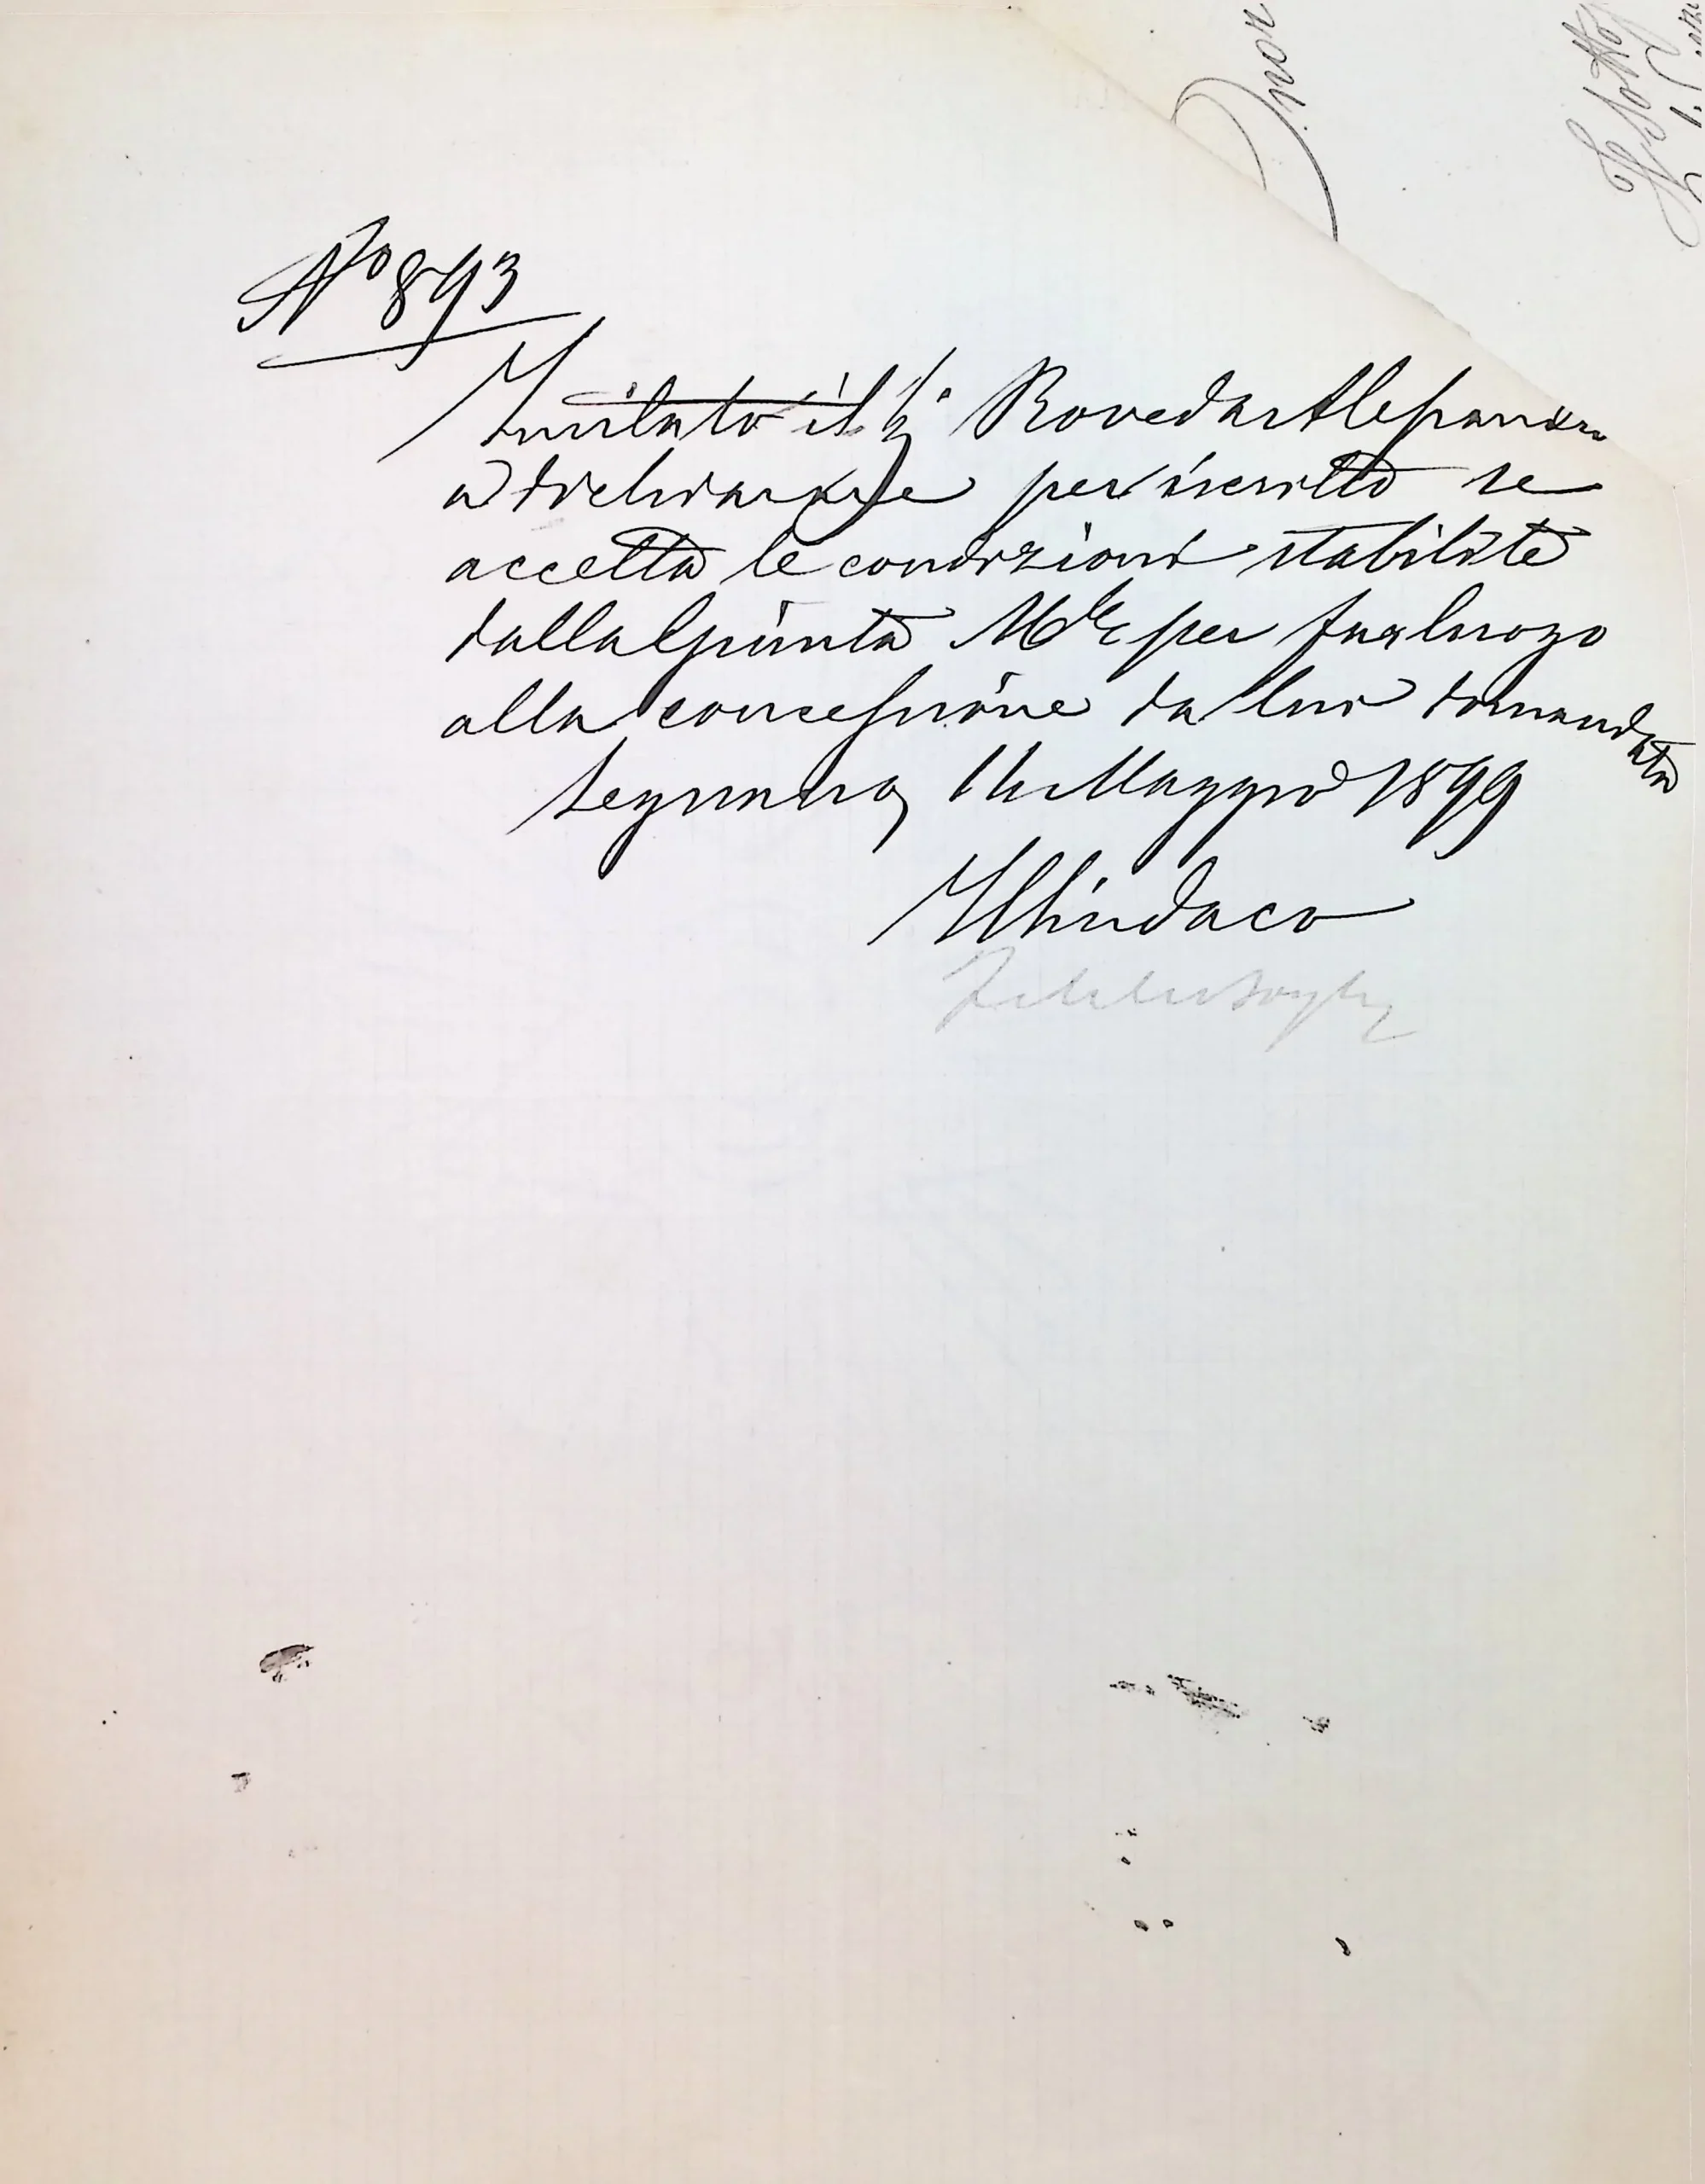 No 893
Invitato il Sig. Roveda Alessandro
a dichiarare per iscritto se
accetta le condizioni stabilite
dalla Giunta Mle per far luogo
alla concessione da lui domandata
Maggio 1899
Il Sindaco